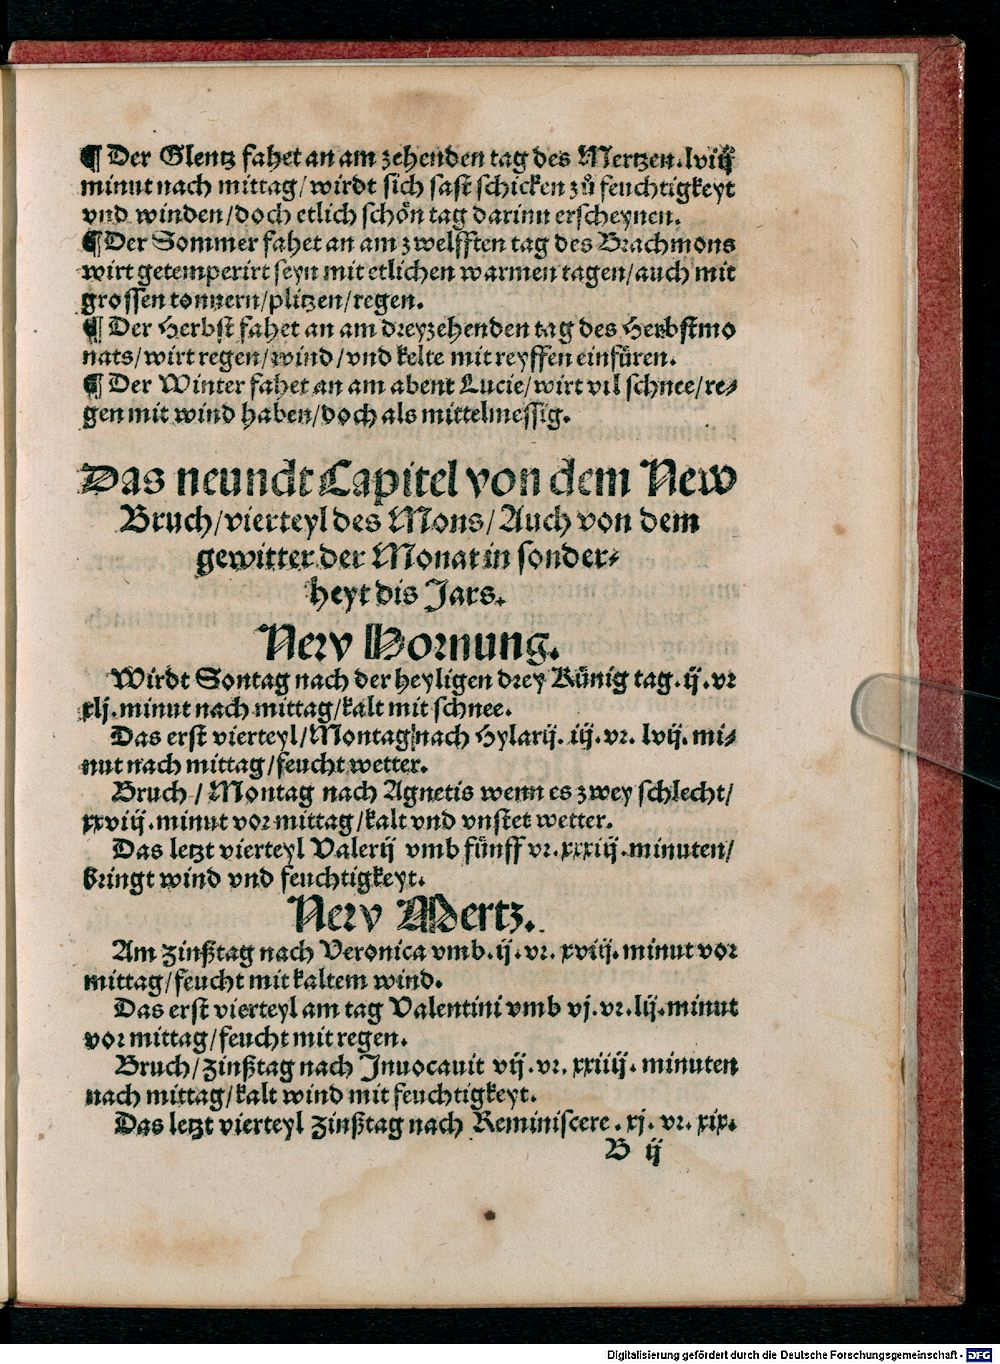 ¶ Der Glentz fahet an am zehenden tag des Mertzen. lviij
minut nach mittag/ wirdt sich fast schicken zů feuchtigkeyt
vnd winden/ doch etlich schön tag darinn erscheynen.
¶ Der Sommer fahet an am zwelfften tag des Brachmons
wirt getemperirt seyn mit etlichen warmen tagen/ auch mit
grossen tonnern/ plitzen/ regen.
¶ Der Herbst fahet an am dreyzehenden tag des Herbstmo
nats/ wirt regen/ wind/ vnd kelte mit reyffen einfüren.
¶ Der Winter fahet an am abent Lucie/ wirt vil schnee/ re⸗
gen mit wind haben/ doch als mittelmessig.
Das neundt Capitel von dem New
Bruch/ vierteyl des Mons/ Auch von dem
gewitter der Monat in sonder⸗
heyt dis Jars.
New Hornung.
Wirdt Sontag nach der heyligen drey Künig tag. ij. vr
xlj. minut nach mittag/ kalt mit schnee.
Das erst vierteyl/ Montag nach Hylarij. iij. vr. lvij. mi⸗
nut nach mittag/ feucht wetter.
Bruch/ Montag nach Agnetis wenn es zwey schlecht/
xxviij. minut vor mittag/ kalt vnd vnstet wetter.
Das letzt vierteyl Valerij vmb fünff vr. xxxiij. minuten/
bringt wind vnd feuchtigkeyt.
New Mertz.
Am zinßtag nach Veronica vmb. ij. vr. xviij. minut vor
mittag/ feucht mit kaltem wind.
Das erst vierteyl am tag Valentini vmb vj. vr. lij. minut
vor mittag/ feucht mit regen.
Bruch/ zinßtag nach Jnuocauit vij. vr. xxiiij. minuten
nach mittag/ kalt wind mit feuchtigkeyt.
Das letzt vierteyl zinßtag nach Reminiscere. xj. vr. xix.
B ij
Digitalisierung gefördert durch die Deutsche Forschungsgemeinschaft - DFG